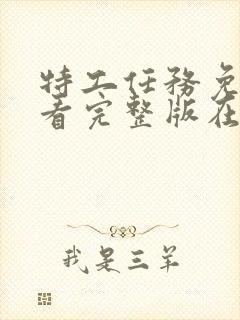 特工任务免
看完整版在
我是三羊